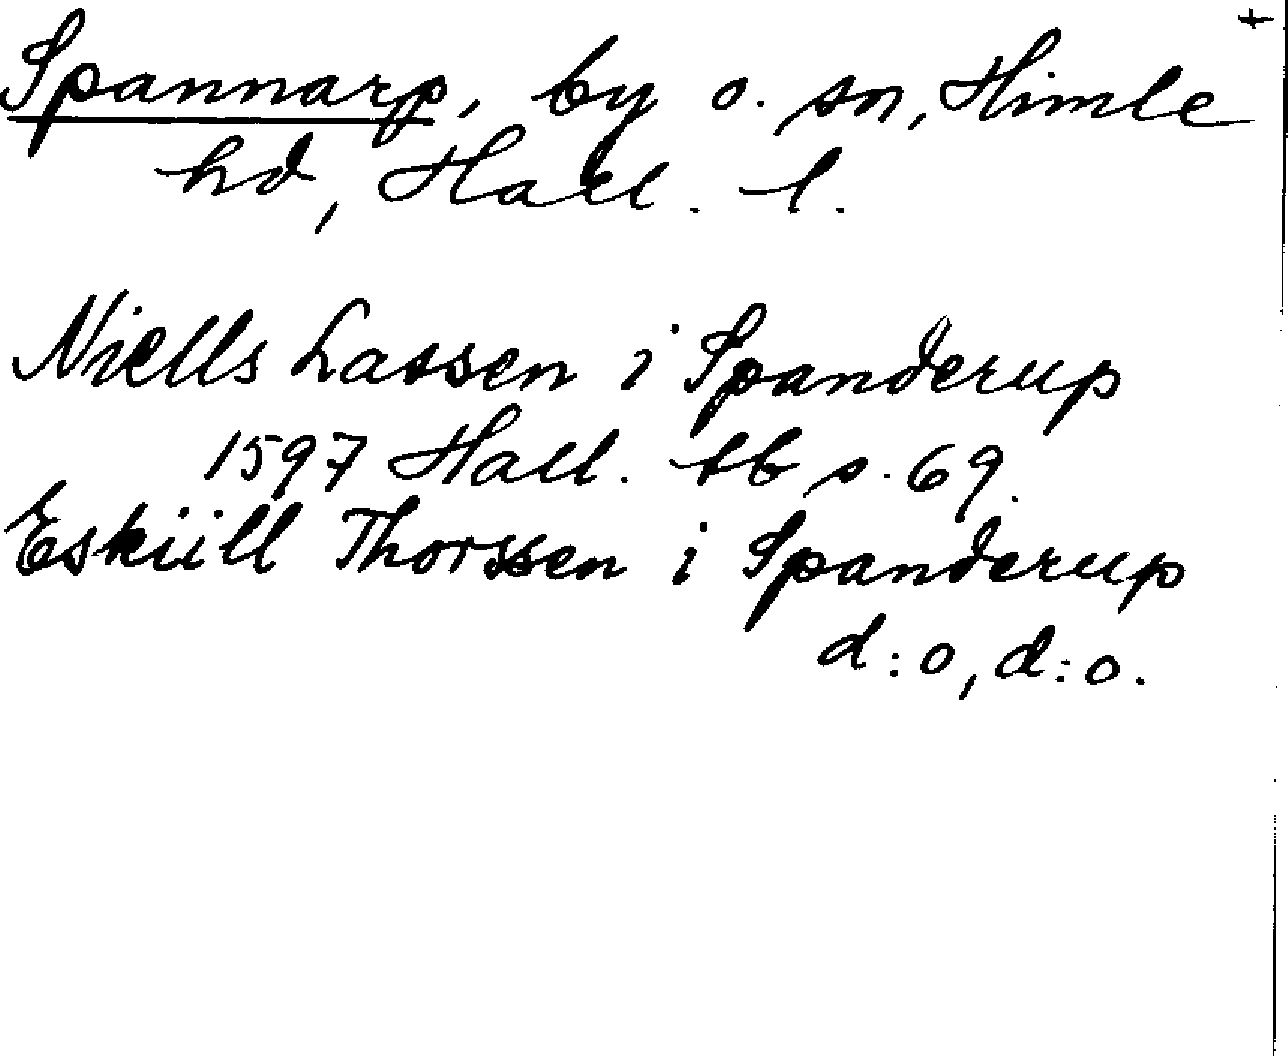 +
Spannarp, by o. sn, Himle
hd, Hall. l.
Niells Lassen i Spanderup
1597 Hall. tb s. 69.
Eskiill Thorssen i Spanderup
d:o, d:o.